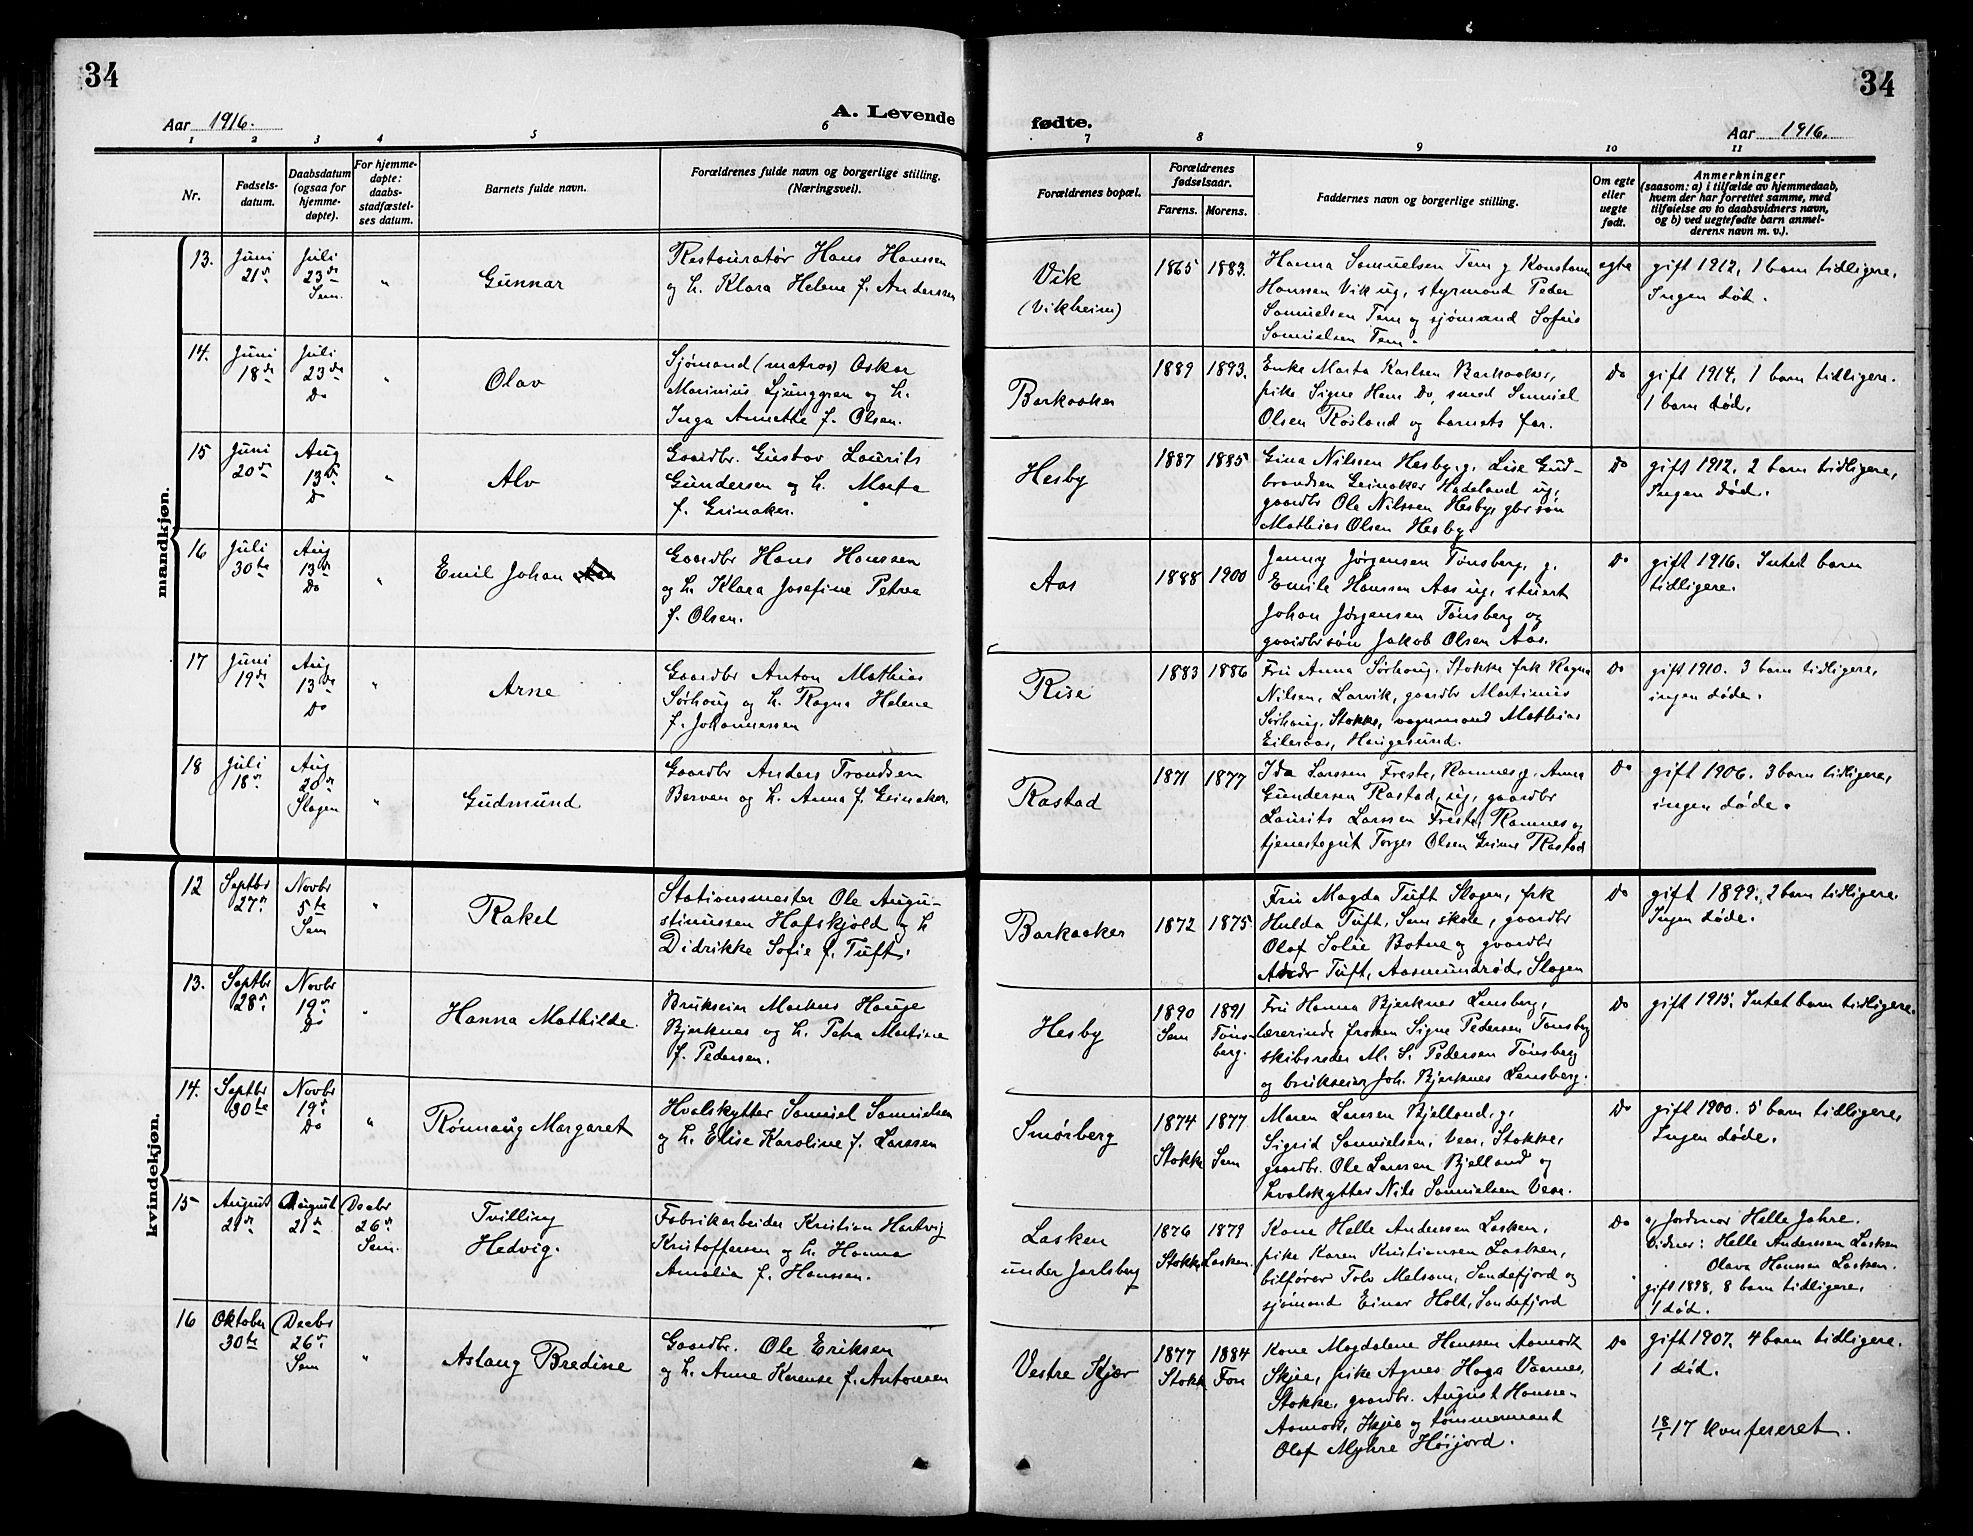 34
34
Aar 1916.
A. Levende
fødte.
Aar 1916.
1 2 3 4 5 6 7 8 9 10 11
Nr.
Fødsels-
datum.
Daabsdatum
(ogsaa for
hjemme-
døpte).
For hjemme-
døpte:
daabs-
stadfæstel-
ses datum.
Barnets fulde navn.
Forældrenes fulde navn og borgerlige stilling.
(Næringsvei).
Forældrenes bopæl.
Forældrenes
fødselsaar.
Farens. Morens.
Faddernes navn og borgerlige stilling.
Om egte
eller
uegte
født.
Anmerkninger
(saasom: a) i tilfælde av hjemmedaab,
hvem der har forrettet samme, med
tilføielse av to daabsvidners navn,
og b) ved uegtefødte barn anmel-
derens navn m. v.).
mandkjøn.
13.
Juni
21de
Juli
23de
Sem.
"
Gunnar
Restauratør Hans Hanssen
og h. Klara Helene f. Anderssen
Vik
(Vikheim)
1865 1883.
Hanna Samuelsen Tem g. Konstanse
Hanssen Vik ug, styrmand Peder
Samuelsen Tem og sjømand Sofus
Samuelsen Tem.
egte
gift 1912, 1 barn tidligere,
Ingen død.
14.
Juni
18de
Juli
23de
Do
"
Olav
Sjømand (matros) Oskar
Marinius Ljunggren og h.
Inga Annette f. Olsen.
Barkaaker
1889 1893.
Enke Marta Karlsen Barkaaker,
pike Signe Hem Do, smed Samuel
Olsen Røsland og barnets far.
Do
gift 1914, 1 barn tidligere.
1 barn død.
15
Juni
20de
Aug
13de
Do
"
Alv
Gaardbr. Gustav Laurits
Gundersen og h. Marta
f. Grinaker.
Hesby
1887 1885
Gina Nilssen Hesby, g. Lise Gud-
brandsen Grinaker Hadeland ug,
gaardbr Ole Nilssen Hesby, gbr søn
Mathias Olsen Hesby.
Do
gift 1912, 2 barn tidligere,
Ingen død.
16
Juli
30te
Aug
13de
Do
"
Emil Johan
Gaardbr Hans Hanssen
og h. Klara Josefine Petrea
f. Olsen.
Aas
1888 1900
Jenny Jørgensen Tønsberg, g.
Emile Hanssen Aas ug, stuert
Johan Jørgensen Tønsberg og
gaardbrsøn Jakob Olsen Aas.
Do
gift 1916. Intet barn
tidligere.
17
Juni
19de
Aug
13de
Do
"
Arne
Gaardbr Anton Mathias
Sørhaug og h. Ragna Helene
f. Johannessen
Rise
1883 1886
Fru Anna Sørhaug, Stokke frk Ragna
Nilsen, Larvik, gaardbr Martinius
Sørhaug, Stokke, vognmand Mathias
Eileraas, Haugesund.
Do
gift 1910. 3 barn tidligere,
ingen døde.
18
Juli
18de
Aug
20de
Slagen
"
Gudmund
Gaardbr Anders Trondsen
Berven og h. Anna f. Grinaker.
Rastad
1871 1877
Ida Larssen Freste, Ramnes g. Anna
Gundersen Rastad, ug, gaardbr
Laurits Larssen Freste, Ramnes og
tjenestegut Torger Olsen Grime Rastad
Do
gift 1906. 3 barn tidligere,
ingen døde.
kvindekjøn.
12
Septbr
27de
Novbr
5te
Sem
"
Rakel
Stationsmester Ole Augu-
stinussen Hafskjold og h
Didrikke Sofie f. Tuft.
Barkaaker
1872 1875
Fru Magda Tuft Slagen, frk
Hulda Tuft, Sem skole, gaardbr
Olaf Solie Botne og gaardbr
Tuft, Aasmundrød, Slagen
Do
gift 1899, 2 barn tidligere.
Ingen døde.
13.
Septbr
28de
Novbr
19de
Do
"
Hanna Mathilde.
Brukseier Markus Hauge
Bjerknes og h. Petra Martine
f. Pedersen.
Hesby
1890
Sem
1891
Tøns-
berg.
Fru Hanna Bjerknes Lensberg,
lærerinde frøken Signe Pedersen Tønsberg
skibsreder M. S. Pedersen Tønsberg
og brukseier Joh. Bjerknes Lensberg.
Do
gift 1915. Intet barn tidligere.
14.
Septbr
30te
Novbr
19de
Do
"
Rønnaug Margaret
Hvalskytter Samuel Samuelsen
og h. Elise Karoline f. Larssen
Smørberg
1874
Stokke
1877
Sem
Maren Larssen Bjelland, g.
Sigrid Samuelsen, Vear, Stokke,
gaardbr. Ole Larssen Bjelland og
hvalskytter Nils Samuelsen Vear.
Do
gift 1900. 5 barn tidligere,
Ingen døde.
15
August
21de
August
21de
Decbr
26de
Sem.
Tvilling
Hedvig.
Fabrikarbeider Kristian Hartvig
Kristoffersen og h. Hanna
Amalia f. Hanssen.
Lasken
under Jarlsberg
1876
Stokke
1879
Lasken.
Kone Helle Anderssen Lasken,
pike Karen Kristiansen Lasken,
bilfører Tolv Melsom, Sandefjord og
sjømand Einar Holt, Sandefjord
Do
a) Jordmor Helle Jahre.
Vidner: Helle Anderssen Lasken
Olava Hanssen Lasken.
gift 1898, 8 barn tidligere,
1 død.
16
Oktober
30te
Decbr
26de
Sem
"
Aslaug Bredine
Gaardbr. Ole Eriksen
og h. Anne Karense f. Antonsen
Vestre Skjær
1877
Stokk
1884
Fon
Kone Magdalene Hanssen Aamodt
Skjee, pike Agnes Haga Vaarnes,
Stokke, gaardbr. August Hansse-
Aamodt, Skjee og tømmermand
Olaf Myhre Høijord.
Do
gift 1907. 4 barn tidligere.
1 død.
18/1 17 konfereret.